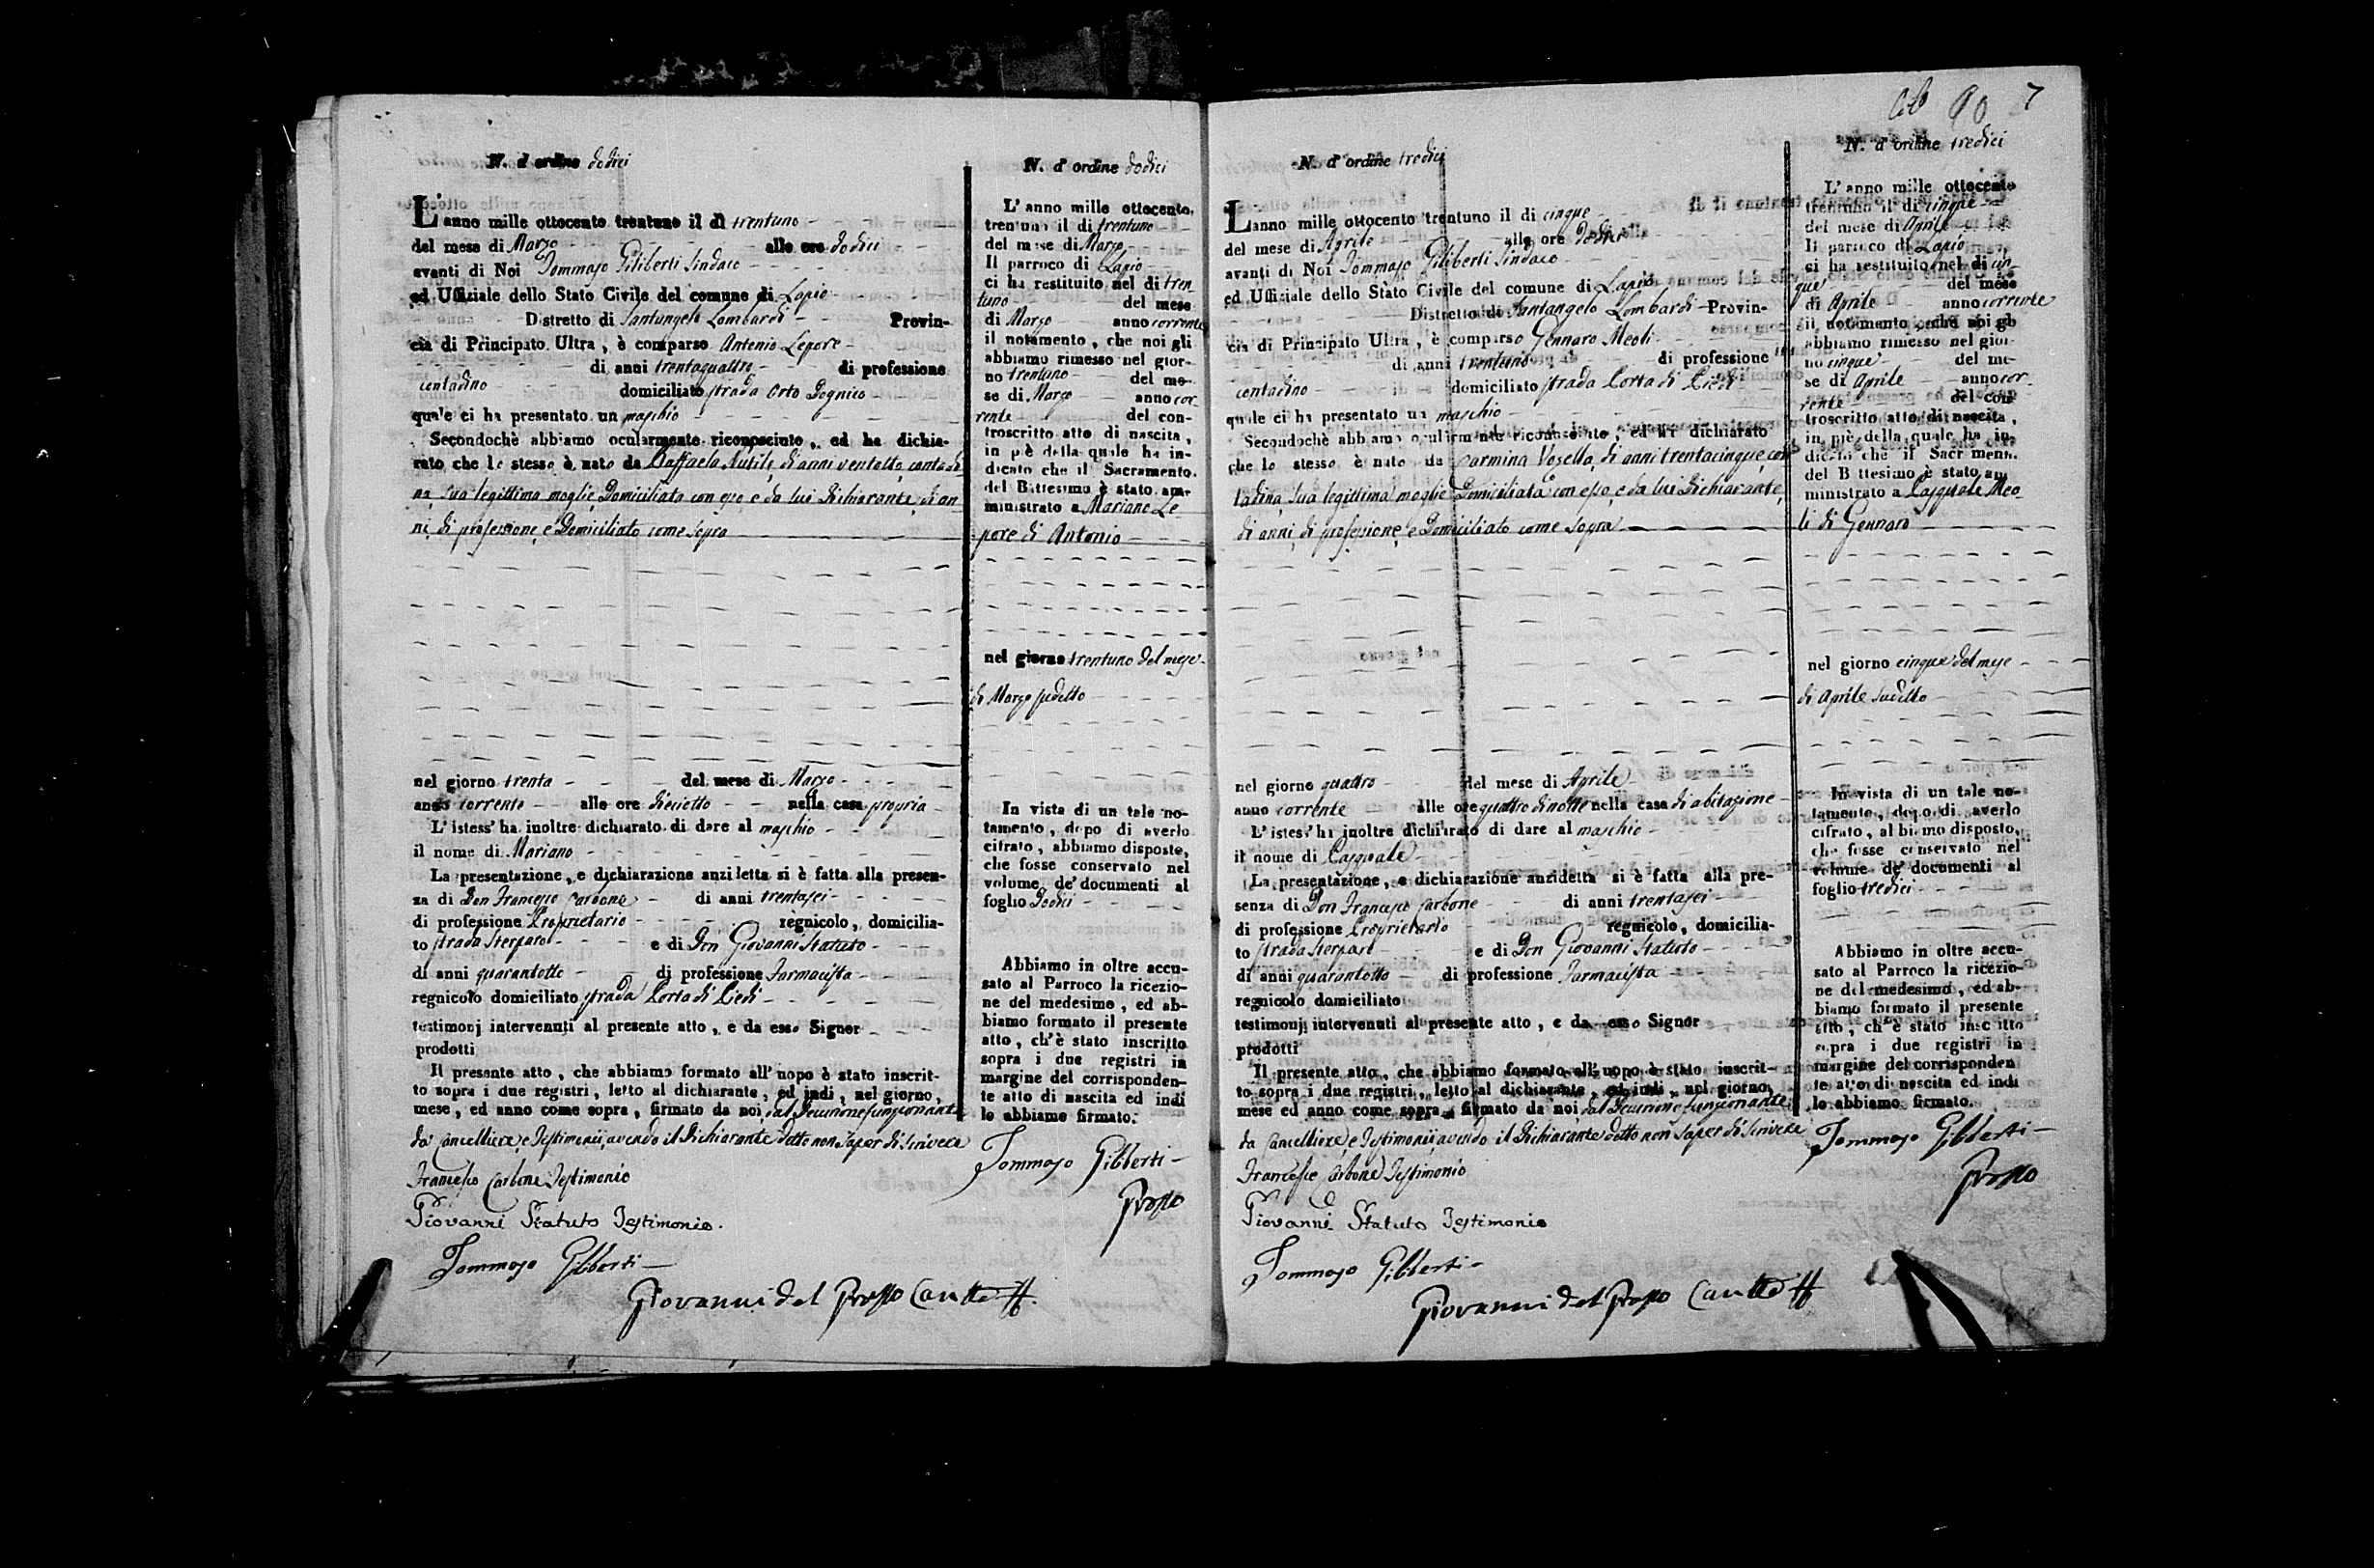 N. d'ordine dodici
L'anno mille ottocento trentuno il dì trentuno
del mese di Marzo alle ore dodici
avanti di Noi Tommaso Giliberti Sindaco
ed Uffiziale dello Stato Civile del comune di Lapio
Distretto di Santangelo Lombardi Provin-
cia di Principato Ultra, è comparso Antonio Lepore
di anni trentaquattro di professione
contadino domiciliato strada Orto
qua'e ci ha presentato un maschio
Secondochè abbiamo ocularmente riconosciuto, ed ha dichia-
rato che lo stesso è nato da Raffaela Nutile, di anni ventotto, contadi
na, sua legittima moglie, Domiciliata con esso, e da lui Dichiarante, di an
ni, di professione, e Domiciliato come sopra
nel giorno trenta del mese di Marzo
anno corrente alle ore dieciotto nella casa propria
L'istess' ha inoltre dichiarato di dare al maschio
il nome di Mariano
La presentazione, e dichiarazione anzidetta si è fatta alla presen-
za di Don Francesco Carbone di anni trentasei
di professione Proprietario regnicolo, domicilia-
to strada Sterparo e di Don Giovanni Statuto
di anni quarantotto di professione Farmacista
regnicolo domiciliato strada Corta di Piedi
testimonj intervenuti al presente atto, e da esso Signor
prodotti
Il presente atto, che abbiamo formato all'uopo è stato inscrit-
to sopra i due registri, letto al dichiarante, ed indi, nel giorno,
mese, ed anno come sopra, firmato da noi, dal Decurione funzionante
da Cancelliere, e Testimonii, avendo il Dichiarante detto non saper di scrivere
Francesco Carbone Testimonio
Giovanni Statuto Testimonio.
Tommaso Giliberti
Giovanni del Prosso
N. d'ordine dodici
L'anno mille ottocento
trentuno il dì trentuno
del mese di Marzo
Il parroco di Lapio
ci ha restituito nel dì tren
tuno del mese
di Marzo anno corrente
il notamento, che noi gli
abbiamo rimesso nel gior-
no trentuno del me-
se di Marzo anno cor-
rente del con-
troscritto atto di nascita,
in piè della quale ha in-
dicato che il Sacramento
del Battesimo è stato am-
ministrato a Mariano Le
pore di Antonio
nel giorno trentuno del mese
di Marzo sudetto
In vista di un tale no-
tamento, dopo di averlo
cifrato, abbiamo disposto,
che fosse conservato nel
volume de' documenti al
foglio Dodici
Abbiamo in oltre accu-
sato al Parroco la ricezio-
ne del medesimo, ed ab-
biamo formato il presente
atto, ch'è stato inscritto
sopra i due registri in
margine del corrisponden-
te atto di nascita ed indi
lo abbiamo firmato.
Tommaso Giliberti
Prosso
7
N. d'ordine tredici
L'anno mille ottocento trentuno il dì cinque
del mese di Aprile alle ore dodici
avanti di Noi Tommaso Giliberti Sindaco
ed Uffiziale dello Stato Civile del comune di Lapio
Distretto di Santangelo Lombardi Provin-
cia di Principato Ultra, è comparso Gennaro Meoli
di anni trentuno di professione
contadino domiciliato strada Corta di Piedi
quale ci ha presentato un maschio
Secondochè abbiamo ocularmente riconosciuto, ed ha dichiarato
che lo stesso è nato da Carmina Vosella, di anni trentacinque, con
tadina, sua legittima moglie Domiciliata con esso, e da lui Dichiarante,
di anni, di professione, e Domiciliato come sopra
nel giorno quattro del mese di Aprile
anno corrente alle ore quattro di notte nella casa di abitazione
L'istess' ha inoltre dichiarato di dare al maschio
il nome di Pasquale
La presentazione, e dichiarazione anzidetta si è fatta alla pre-
senza di Don Francesco Carbone di anni trentasei
di professione Proprietario regnicolo, domicilia-
to strada Sterparo e di Don Giovanni Statuto
di anni quarantotto di professione Farmacista
regnicolo domiciliato
testimonj intervenuti al presente atto, e da esso Signor
prodotti
Il presente atto, che abbiamo formato all'uopo è stato inscrit-
to sopra i due registri, letto al dichiarante, ed indi, nel giorno,
mese ed anno come sopra, firmato da noi dal Decurione funzionante
da Cancelliere, e Testimonii, avendo il Dichiarante detto non saper di scrivere
Francesco Carbone Testimonio
Giovanni Statuto Testimonio
Tommaso Giliberti
Giovanni del Prosso
N. d'ordine tredici
L'anno mille ottocento
trentuno il dì cinque
del mese di Aprile
Il parroco di Lapio
ci ha restituito nel dì cin-
que del mese
di Aprile anno corrente
il notamento, che noi gli
abbiamo rimesso nel gior-
no cinque del me-
se di Aprile anno cor-
rente del con-
troscritto atto di nascita,
in piè della quale ha in-
dicato che il Sacramento
del Battesimo è stato am-
ministrato a Pasquale Meo-
li di Gennaro
nel giorno cinque del mese
di Aprile sudetto
In vista di un tale no-
tamento, dopo di averlo
cifrato, abbiamo disposto,
che fosse conservato nel
volume de' documenti al
foglio tredici
Abbiamo in oltre accu-
sato al Parroco la ricezio-
ne del medesimo, ed ab-
biamo formato il presente
atto, ch'è stato inscritto
sopra i due registri in
margine del corrisponden
te atto di nascita ed indi
lo abbiamo firmato.
Tommaso Giliberti
Prosso